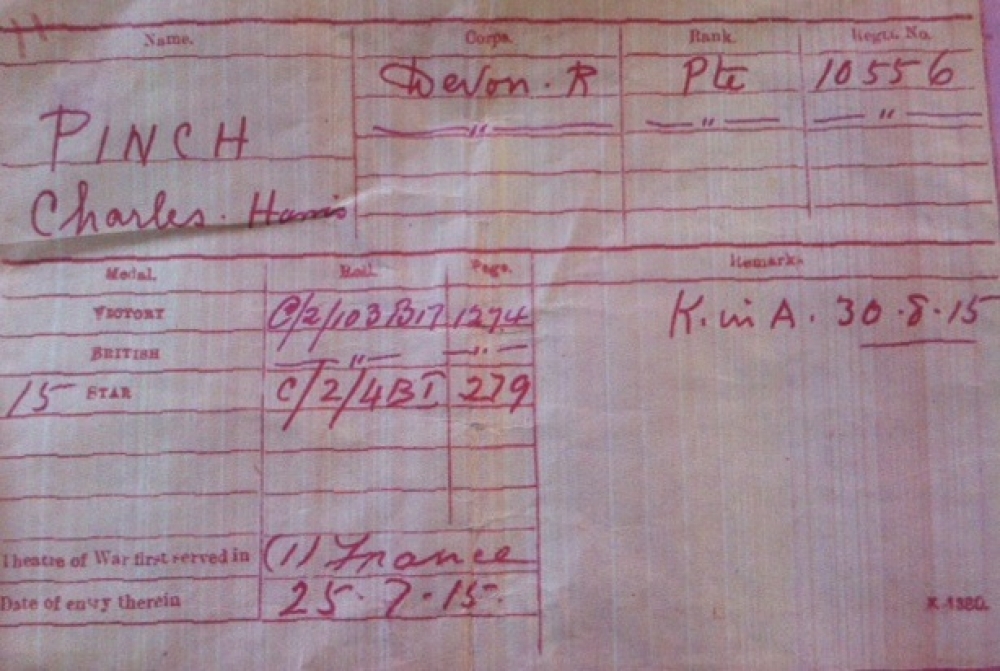 Name. Corps. Rank. Regtl. No.
Devon. R Pte 10556
PINCH — " — — " — — " —
Charles. Harris
Medal. Roll. Page. Remarks.
VICTORY C/2/103B17 1274 K. in A. 30.8.15
BRITISH — " — — " —
15 STAR C/2/4BI 279
Theatre of War first served in (1) France
Date of entry therein 25.7.15.
K 1380.